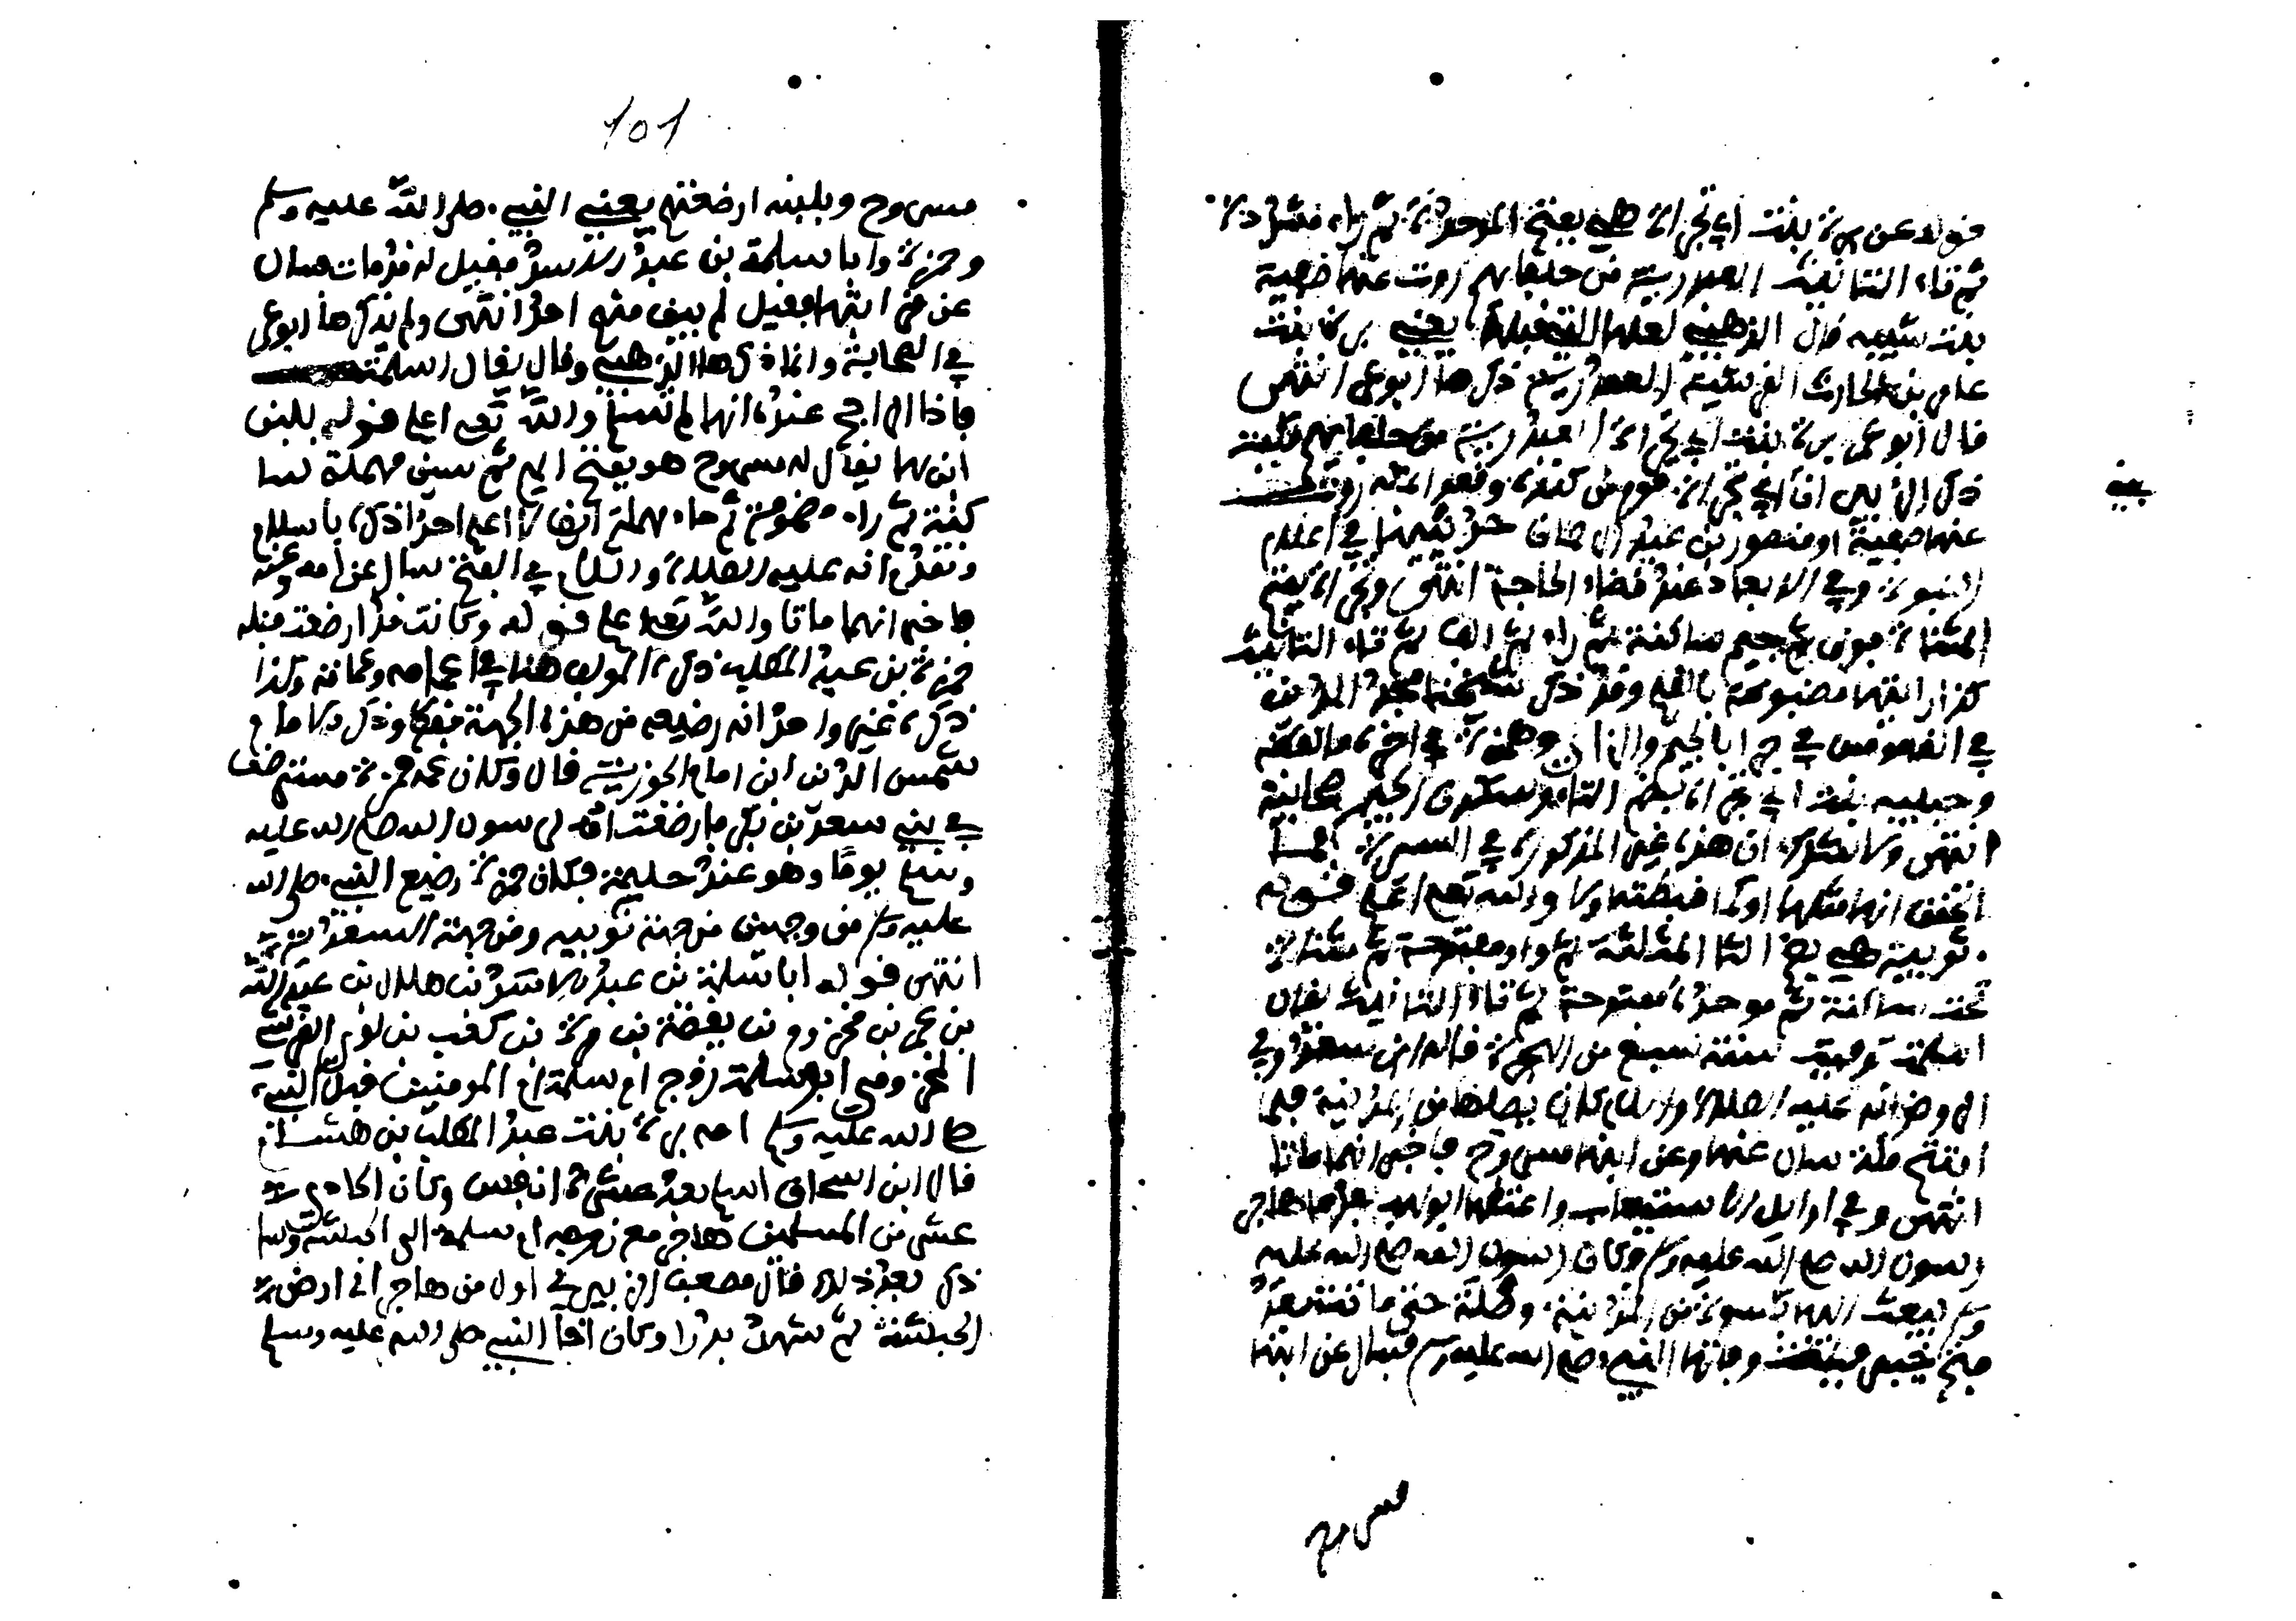 قوله عن برة بنت ابي تجراة هي بفتح الموحدة ثم راء مشددة
ثم تاء التانيث العبدرية من حلفايهم روت عنها صفية
بنت شيبه قال الذهبي لعلها التي قبلها يعني برة بنت
عامر بن الحارث القرشية العبدرية ذكرها ابو عمر انتهى
قال ابو عمر برة بنت ابي تجراة العبدرية من حلفايهم
ذكر الزبير ان ابي تجراة قوم من كندة وقعوا بمكة روت
عنها صفية ام منصور بن عبد الرحمان حديثها في اعلام
النبوة وفي الابعاد عند قضاء الحاجة انتهى وتجراة بفتح
المثناة فوق ثم جيم ساكنة ثم راء ثم الف ثم تاء التانيث
كذا رايتها مضبوطة بالقلم وقد ذكر شيخنا مجد الدين
في القاموس في جزا بالجيم والزاي وهمزة في اخره ما لفظه
وحبيبه بنت ابي تجزاة بضم التاء وسكون الجيم صحابية
انتهى ولا شك ان هذه غير المذكورة في السيرة
انها مثلها اوكما ضبطتها ولا والله تعلى اعلم قوله
ثويبة هي بضم الثا المثلثة ثم واو مفتوحة ثم مثناة
تحت ساكنة ثم موحدة مفتوحة ثم تاء التانيث يقال
اسلمت توفيت سنة سبع من الهجرة قاله ابن سعد وفي
الروض انه عليه الصلاة والسلام كان يصلها من المدينة فلما
افتتح مكة سال عنها وعن ابنها مسروح فاخبر انهما ماتا
انتهى وفي اوايل الاستيعاب واعتقها ابو لهب بعد ما هاجر
رسول الله صلى الله عليه وسلم وكان رسول الله صلى الله عليه
وسلم يبعث اليها بكسوة من المدينة وصلة حتى ماتت بعد
فتح خيبر فبلغت وفاتها النبي صلى الله عليه وسلم فسال عن ابنها
مسروح
151
مسروح وبلبنه ارضعتهم يعني النبي صلى الله عليه وسلم
وحمزة وابا سلمة بن عبد الاسد فقيل له قد مات فسال
عن قرابتها فقيل لم يبق منهم احد انتهى ولم يذكرها ابو عمر
في الصحابة وانما ذكرها الذهبي وقال يقال اسلمت
فاذا الراجح عنده انها لم تسلم والله تعلى اعلم قوله بلبن
ابن لها يقال له مسروح هو بفتح الميم ثم سين مهملة سا
كنة ثم راء مضمومة ثم حاء مهملة انفا لا اعلم احدا ذكره باسلام
وتقدم انه عليه الصلاة والسلام في الفتح سال عن امه وعنه
فاخبر انهما ماتا والله تعلى اعلم قوله وكانت قد ارضعت قبله
حمزة بن عبد المطلب ذكره المولف هنا وفي اعمامه وعماته وكذا
ذكره غير واحد انه رضيعه من هذه الجهة فقط وذكر الامام
شمس الدين ابن امام الجوزية قال وكان عمه حمزة مسترضعا
في بني سعد بن بكر فارضعت امه رسول الله صلى الله عليه
وسلم يوما وهو عند حليمة فكان حمزة رضيع النبي صلى الله
عليه وسلم من وجهين من جهة ثويبه ومن جهة السعدية
انتهى قوله ابا سلمة بن عبد الاسد بن هلال بن عبد الله
بن عمر بن مخزوم بن يقظة بن مرة بن كعب بن لوي القرشي
المخزومي ابو سلمة زوج ام سلمة ام المومنين قبل النبي
صلى الله عليه وسلم امه برة بنت عبد المطلب بن هشام
قال ابن اسحاق اسلم بعد عشرة انفس وكان الحادي
عشر من المسلمين هاجر مع زوجه ام سلمة الى الحبشة
ذكر بعد ذلك قال مصعب الزبيري اول من هاجر الى ارض
الحبشة ثم شهد بدرا وكان اخا النبي صلى الله عليه وسلم